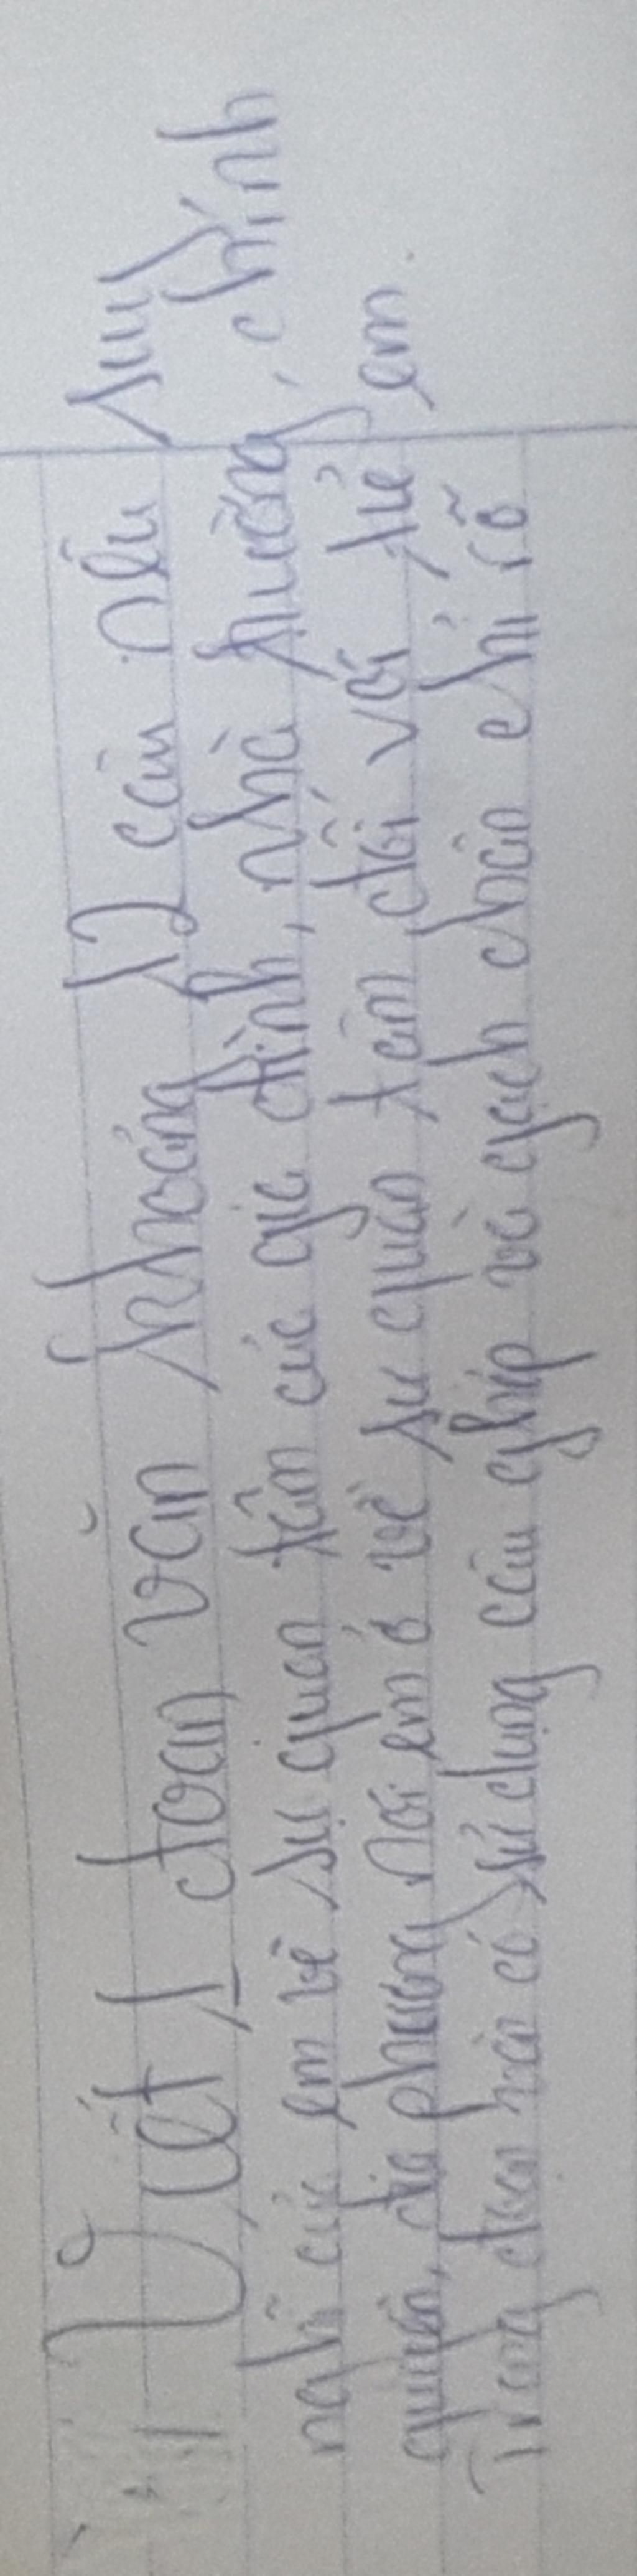 Viết 1 đoạn văn khoảng 12 câu nêu suy
nghĩ của em về sự quan tâm của gia đình, nhà trường, chính
quyền, địa phương nơi em ở về sự quan tâm đối với trẻ em.
Trong đoạn văn có sử dụng câu ghép và gạch chân chỉ rõ